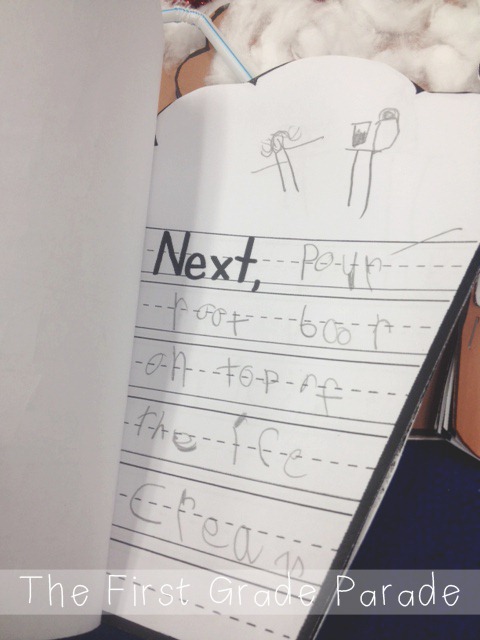 Next, Pour
root boor
on top of
the Ice
Cream
The First Grade Parade